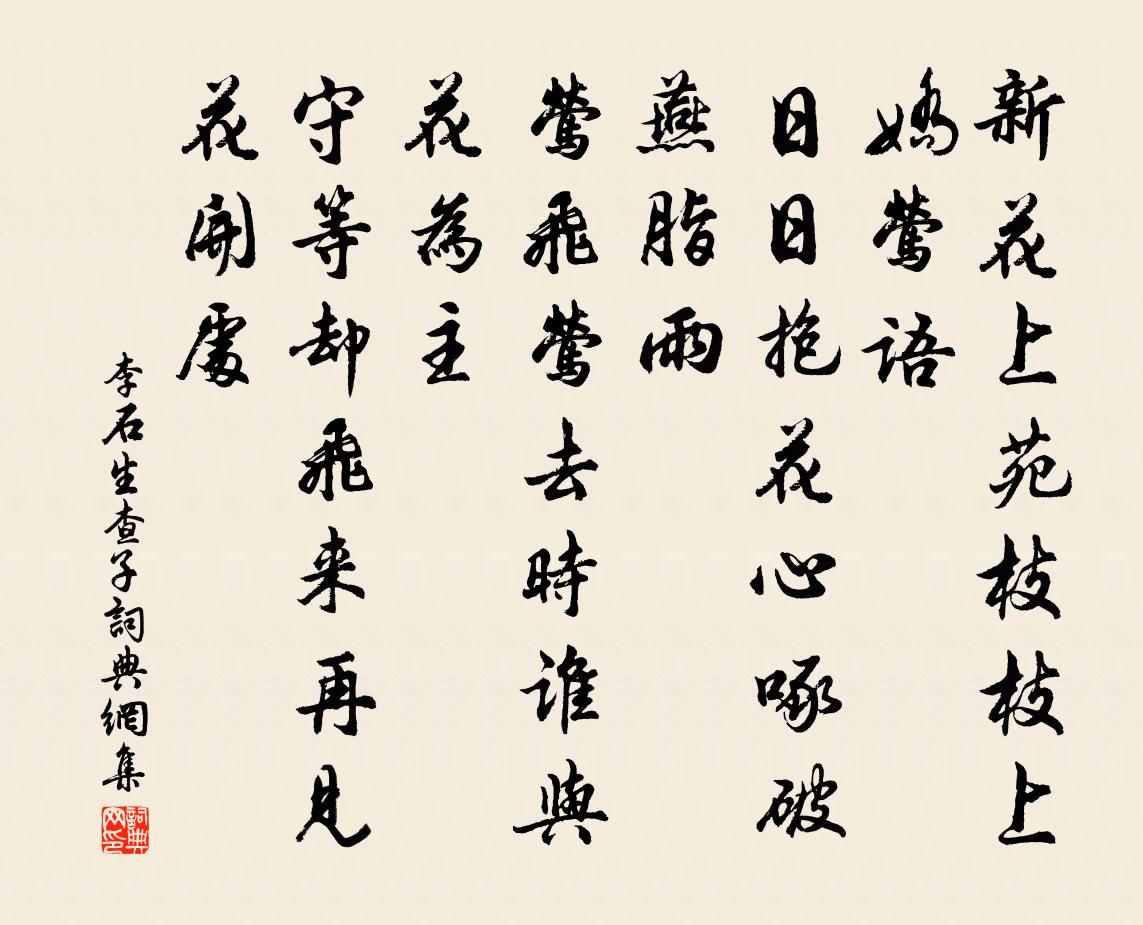 新花上苑枝枝上
嬌鶯語
日日抱花心啄破
燕脂雨
鶯飛鶯去時誰與
花為主
守等却飛来再見
花開處
李石生查子詞典網集
詞典网印